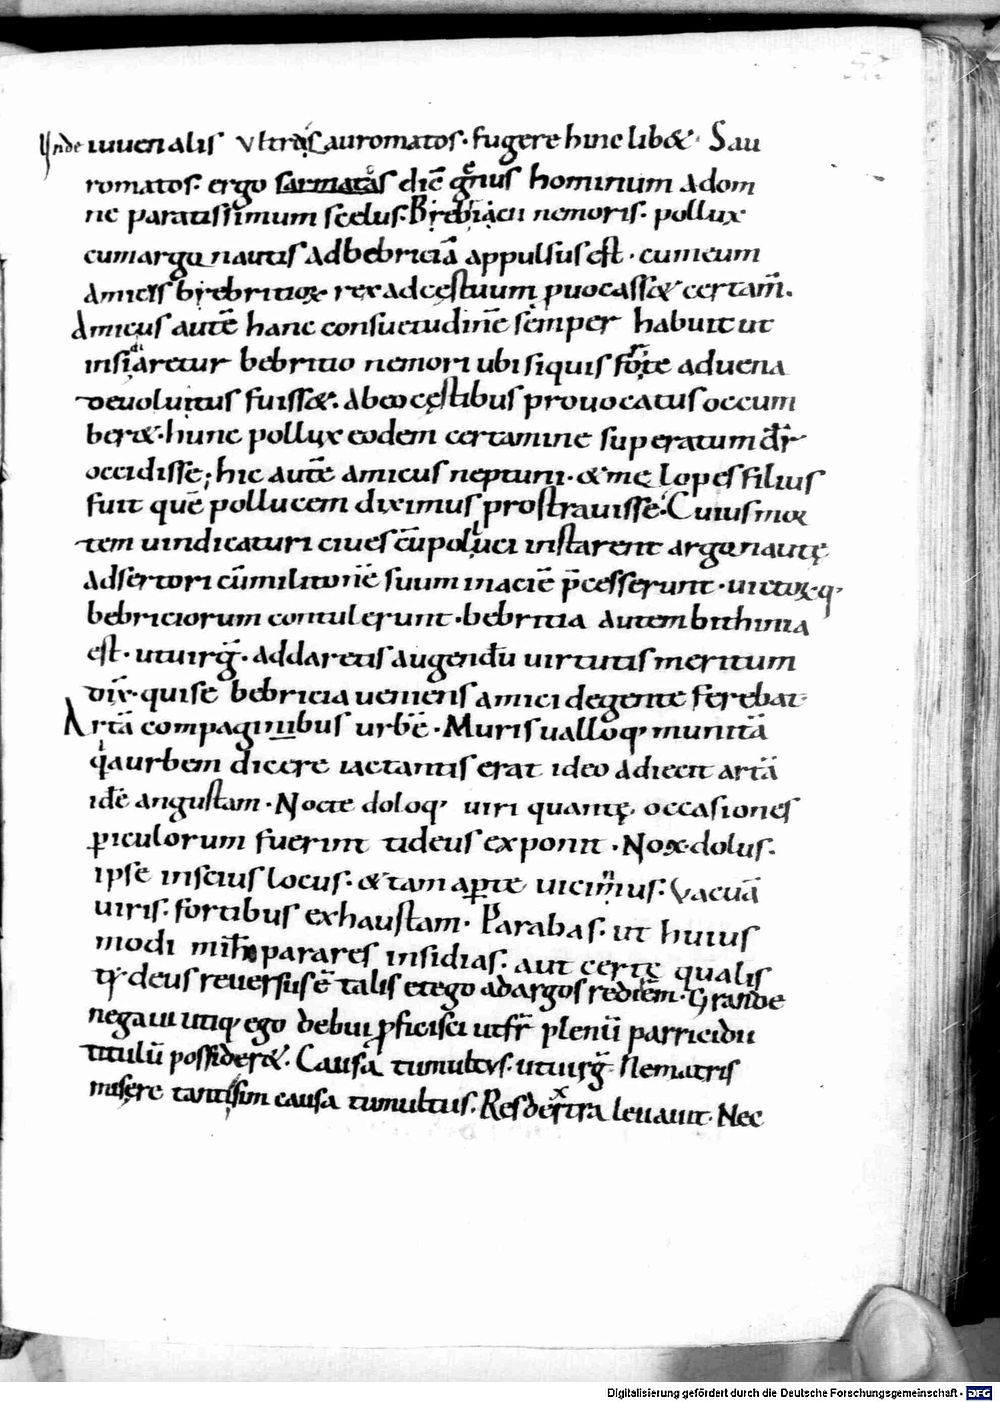 Unde iuuenalis Vltra sauromatos· fugere hinc lib&· Sau
romatos· ergo sarmatas diċ gñus hominum adom
ne paratissimum scelus· Brebiacii nemoris· pollux
cumargo nautis adbebriciā appulsus est· cumeum
Amicus brebritiox rex adcęstuum puocass& certam̄.
Amicus autē hanc consuetudinē semper habuit ut
insidiaretur bebritio nemori ubi siquis forte aduena
deuolutus fuiss&. Abeo cęstibus prouocatus occum
ber&·hunc pollux eodem certamine superatum dr̄
occidisse; hic autē amicus neptuni·&melopes filius
fuit quē pollucem diximus prostrauisse· Cuius mor
tem uindicaturi ciues cū polluci instarent argonautę
adsertori cūmilitonē suum inaciē p̄cesserunt·uictoꝝq·
bebriciorum contulerunt·bebritia autem bithinia
est· utuirḡ· addaretis augendū uirtutis meritum
dix̄·quise bebricia ueniens amici degente ferebat
Artā compaginibus urbē· Muris ualloq· munitā
qa urbem dicere iactantis erat ideo adiecit artā
idē angustam· Nocte doloq· uiri quantę occasiones
periculorum fuerint tideus exponit· Nox·dolus·
ipse inscius locus·&tam aperte uicim̄us· Vacuā
uiris· fortibus exhaustam· Parabas· ut huius
modi mihi parares insidias· aut certę qualis
tydeus reuersus ē talis etego adargos rediēm· Grande
negaui utiq· ego debui p̄ficisci utfr̄ plenū parricidii
titulū possider&· Causa tumultus· utuirḡ flematris
miserę tantissim causa tumultus· Resdextra leuauit· Nec
Digitalisierung gefördert durch die Deutsche Forschungsgemeinschaft · DFG